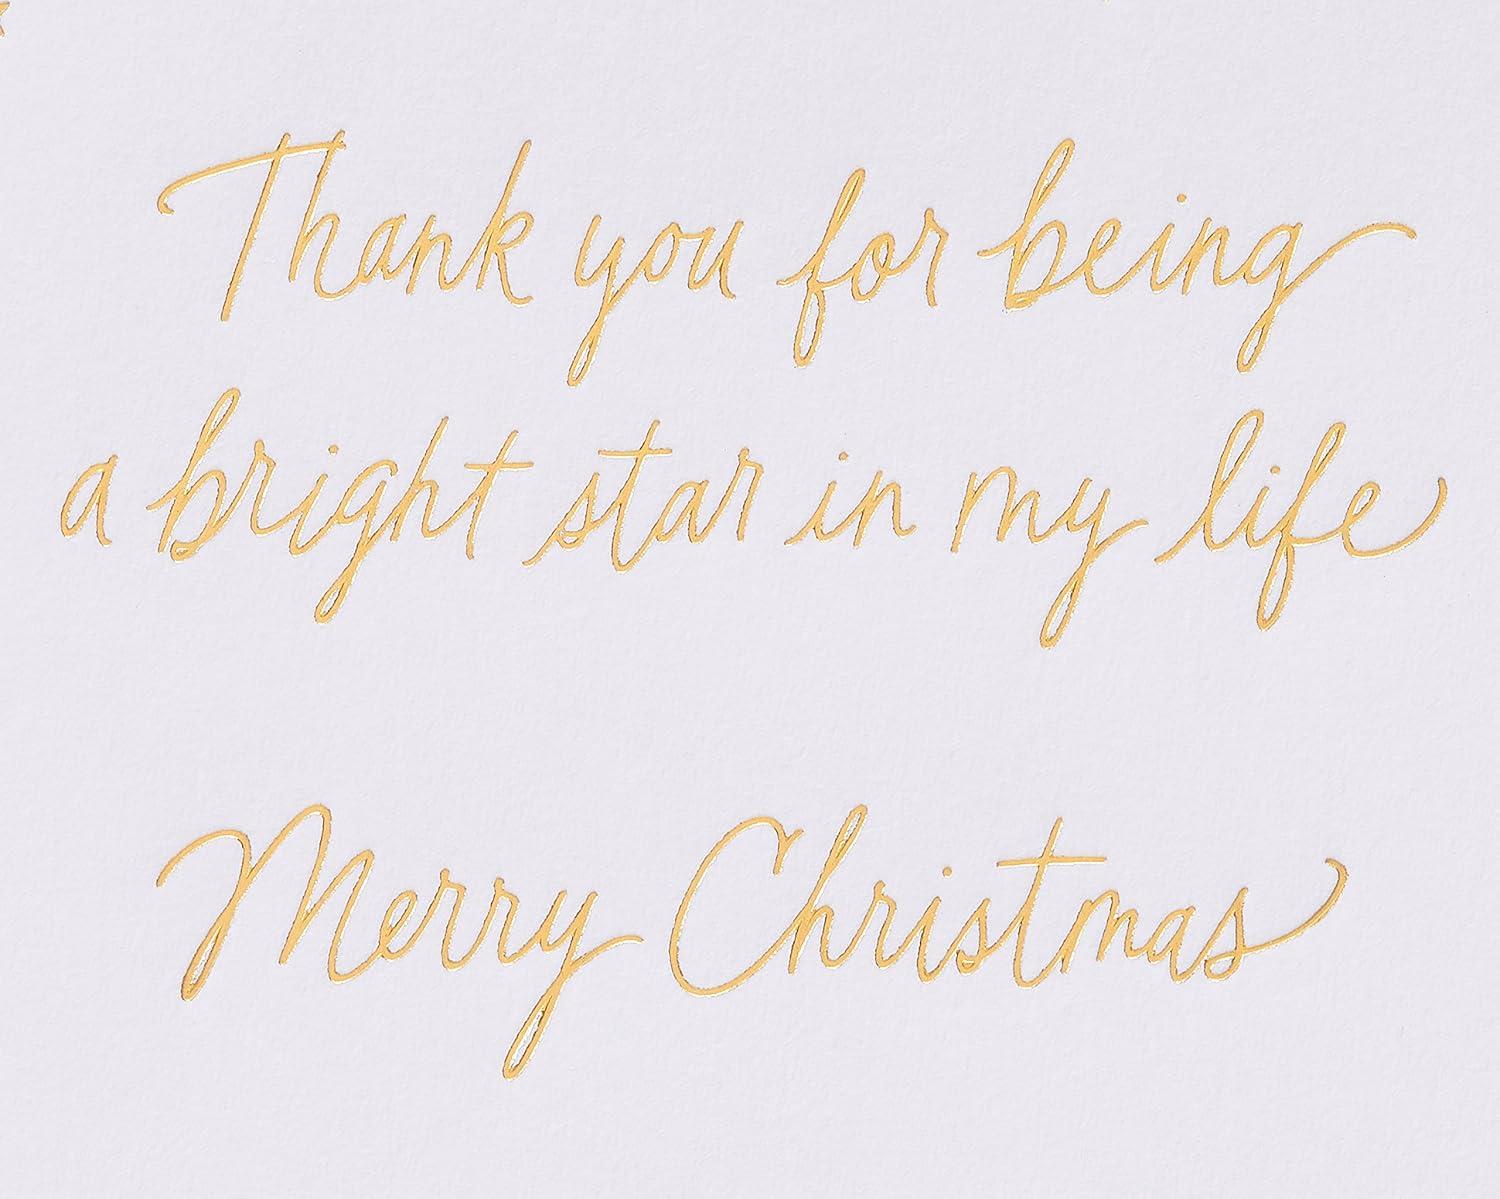 Thank you for being
a bright star in my life
Merry Christmas